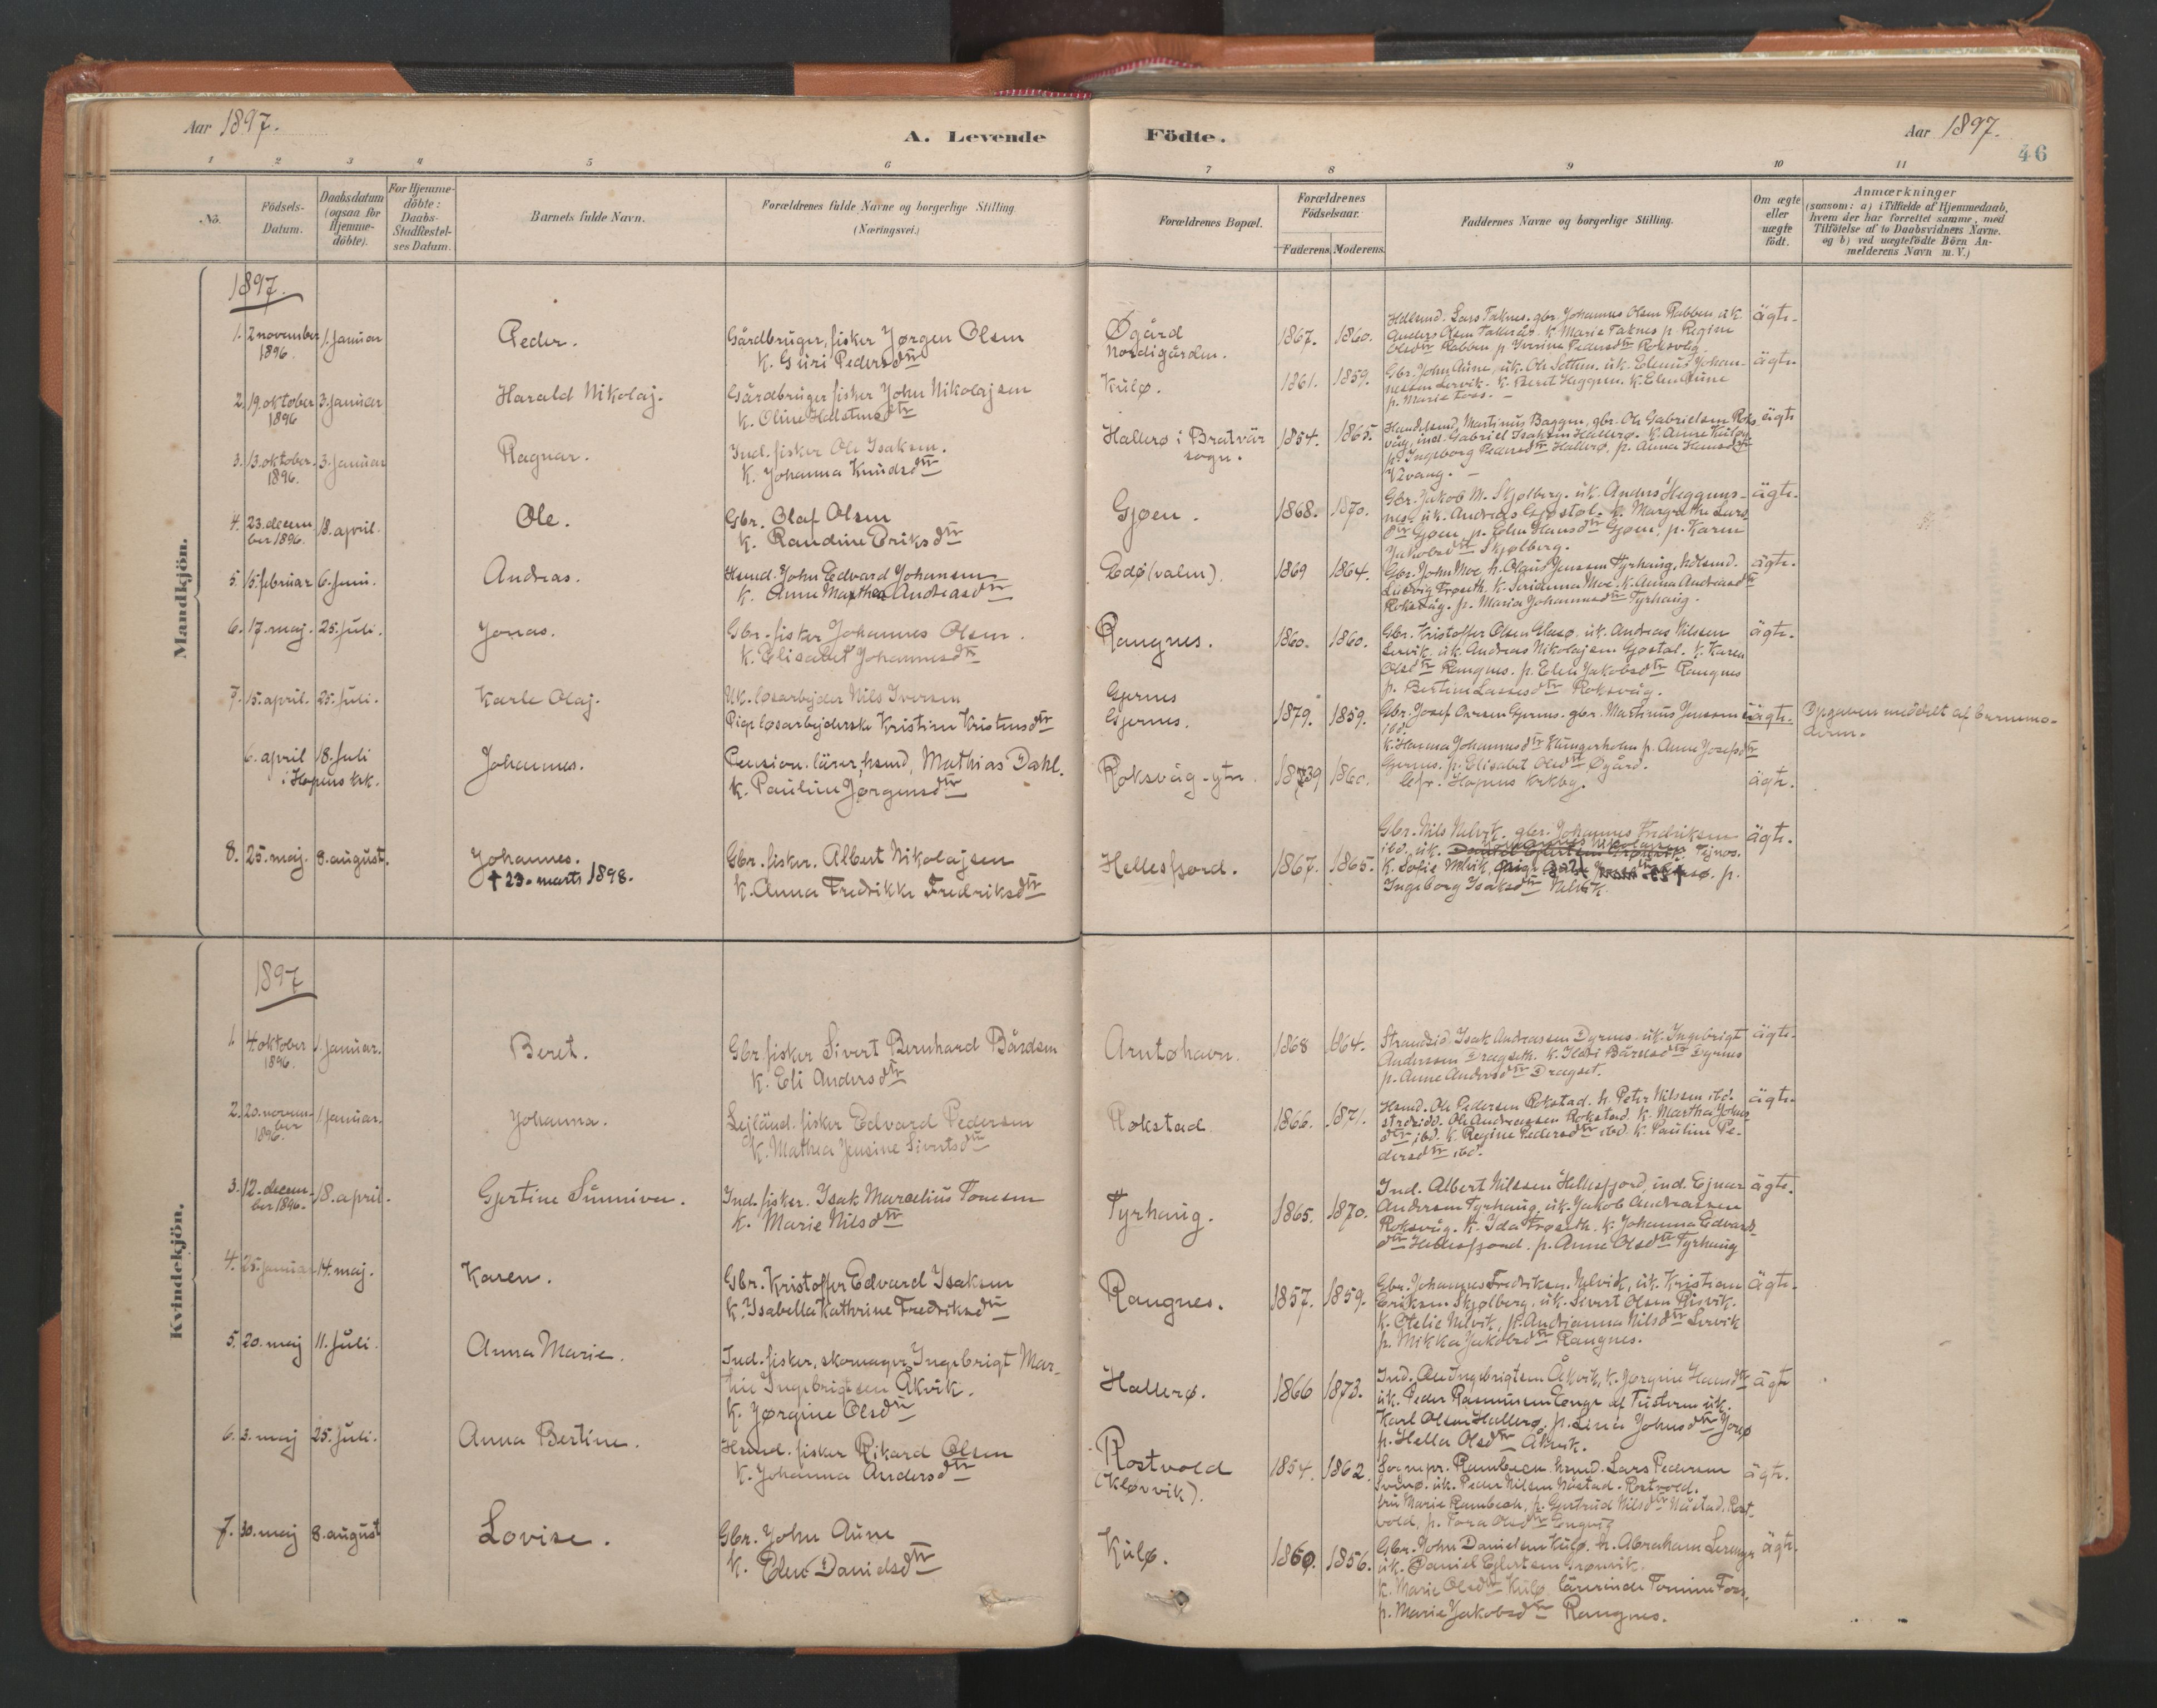 Aar 1897.
A. Levende
Födte.
Aar 1897.
46
1 2 3 4 5 6 7 8 9 10 11
No.
Födsels-Datum.
Daabsdatum (ogsaa for Hjemme-döbte).
For Hjemme-döbte: Daabs-Stadfæstel-ses Datum.
Barnets fulde Navn.
Forældrenes fulde Navne og borgerlige Stilling. (Næringsvei.)
Forældrenes Bopæl.
Forældrenes Födselsaar.
Faderens. Moderens.
Faddernes Navne og borgerlige Stilling.
Om ægte eller uægte födt.
Anmærkninger
(saasom: a) i Tilfælde af Hjemmedaab,
hvem der har forrettet samme, med
Tilföielse af to Daabsvidners Navne.
og b) ved uægtefödte Börn An-
melderens Navn m. V.)
Mandkjön.
1897.
1. 2 november 1896. 1. januar
Peder.
Gårdbruger, fisker Jørgen Olsen
k. Guri Pedersdtr
Øgård
Nordigården.
1867. 1860.
Hdlsmd. Lars Taknes, gbr. Johannes Olsen Rabben, uk.
Anders Olsen k. Marie Taknes p. Regine
Olsdtr Rabben p. Iverine Pedersdtr Roksvåg.
ägte.
2. 19. oktober 1896 3. januar
Harald Nikolaj.
Gårdbruger fisker John Nikolajsen
k. Oline Halstensdtr
Kulø.
1861. 1859.
Gbr. John Aune, uk. Ole uk. Edenus Johan-
nessen Lervik. k. Beret Heggem. k. Elen Aune
p. Marie Foss.
ägte.
3. 13. oktober 1896. 3. januar
Ragnar.
Ind. fisker Ole Isaksen.
k. Johanna Knudsdtr
Hallerø i Bratvär
sogn.
1854. 1865.
Handelsmd. Martinus Baggen, gbr. Ole Gabrielsen Roks-
våg, ind. Gabriel Isaksen Hallerø. k. Anne Kuløy
p. Ingeborg Pedersdtr Hallerø, p. Anna Hansdtr
Vevang.
ägte
4. 23. decem
ber 1896. 18. april.
Ole.
Gbr. Olaf Olsen
k. Randine Eriksdtr
Gjøen.
1868. 1870.
Gbr. Jakob M. Skjølberg. uk. Anders Heggems-
nes. uk. Andreas Gjøstøl. k. Margrethe Lars-
dtr Gjøen, p. Elen Hansdtr Gjøen, p. Karen
Jakobsdtr Skjølberg.
ägte.
5. 15. februar 6. juni.
Andreas.
Hsmd. John Edvard Johansen
k. Anne Marthea Andreasdtr
Edø (valen).
1869 1864.
Gbr. John Moe h. Olaus Jenssen Tyrhaug, hdlsmd.
Ludvig Frøseth. k. Serianna Moe. k. Anna Andreasdtr
Roksvåg. p. Maria Johannesdtr Tyrhaug.
ägte.
6. 17. maj. 25. juli.
Jonas.
Gbr. fisker Johannes Olsen.
k. Elisabet Johannesdtr
Rangnes.
1860. 1860.
Gbr. Kristoffer Olsen Glasø. uk. Andreas Nilssen
Lervik. uk. Andreas Nikolajsen Gjøstøl. k. Karen
Olsdtr Rangnes. p. Elen Jakobsdtr Rangnes
p. Bertine Lassesdtr Roksvåg.
ägte.
7. 15. april. 25. juli.
Karle Olaj.
Uk. løsarbejder Nils Iversen
Pige løsarbejderske Kristine Kristensdtr
Gjernes
Gjernes.
1879. 1859.
Gbr. Josef Gjernes. gbr. Martinus Jenssen
ibd.
k. Hanna Johannesdtr Klungerholm p. Anne Josefsdtr
Gjernes. p. Elisabet Olsdtr Øgård.
uägte.
Opgaven meddelt af barnemo-
deren.
6. april 18. juli
i Hopens krk.
Johannes.
Pension. lärer, hsmd, Mathias Dahl.
k. Pauline Jørgensdtr
Roksvåg-ytre.
1839 1860.
Cfr. Hopens krkbg.
ägte.
8. 25. maj. 8. august.
Johannes.
† 23. marts 1898.
Gbr. fisker. Albert Nikolajsen
k. Anna Fredrikke Fredriksdtr
Hellesfjord.
1867. 1865.
Gbr. Nils Nelvik. gbr. Johannes Fredriksen
ibd. uk. Nikolajsen
k. Sofie Nelvik, p.
Ingeborg Isaksdtr Nelvik.
ägte.
Kvindekjön.
1897
1. 4 oktober 1896. 1. januar.
Beret.
Gbr. fisker Sivert Bernhard Bårdsen
k. Eli Andersdtr
Arntøhavn.
1868 1864.
Strandsid. Isak Andreassen Dyrnes. uk. Ingebrigt
Anderssen Dragseth. k. Ildri Bårdsdtr Dyrnes
p. Anne Andersdtr Dragset.
ägte.
2. 20. novem-
ber 1896. 1. januar.
Johanna.
Lejländ. fisker Edvard Pedersen
k. Mathea Jensine Sivertsdtr
Rokstad
1866. 1871.
Hsmd. Ole Pedersen Rokstad. h. Peter Nilssen ibd.
strdsidd. Ole Andreassen Rokstad. k. Martha Johns-
dtr ibd. k. Regine Pedersdtr ibd. k. Pauline Pe-
dersdtr ibd.
ägte
3. 12. decem-
ber 1896. 18. april.
Gjertine Sunniva.
Ind. fisker. Isak Marcelius Tonesen
k. Marie Nilsdtr
Tyrhaug.
1865. 1870.
Ind. Albert Nilssen Hellesfjord, ind. Ejnar
Andersen Tyrhaug, uk. Jakob Andreassen
Roksvåg. k. Ida Frøseth. k. Johanna Edvards-
dtr Hellesfjord. p. Anne Olsdtr Tyrhaug
ägte.
4. 25. januar 14. maj.
Karen.
Gbr. Kristoffer Edvard Isaksen
k. Isabella Kathrine Fredriksdtr
Rangnes.
1857. 1859.
Gbr. Johannes Fredriksen. Nelvik, uk. Kristian
Eriksen Skjølberg, uk. Sivert Olsen Risvik.
k. Otelie Nelvik, p. Andrianna Nilsdtr Lervik
p. Mikka Jakobsdtr Rangnes.
ägte.
5. 20. maj 11. juli.
Anna Marie.
Ind. fisker, skomager Ingebrigt Mar-
tin Ingebrigtsen Åkvik.
k. Jørgine Olsdtr
Hallerø.
1866 1873.
Ind. Ole Ingebrigtsen Åkvik, k. Jørgine Hansdtr
uk. Peder Rasmussen af Tustern uk.
Karl Olsen Hallerø, p. Lina Johnsdtr
p. Hella Olsdtr Åkvik.
ägte
6. 3. maj 25. juli.
Anna Bertine.
Hsmd. fisker Rikard Olsen
k. Johanna Andersdtr
Rostvold
(Kløvvik).
1854. 1862.
Sognepr. Rambech. hsmd. Lars Pedersen
Svinø. uk. Peder Nilsen Nåstad. Rostvold.
fru Marie Rambech, p. Gjertrud Nilsdtr Nåstad. Rost-
vold, p. Tora Olsdtr Engvig
ägte.
7. 30. maj 8. august
Lovise.
Gbr. John Aune
k. Elen Danielsdtr
Kulø.
1860. 1856.
Gbr. John Danielsen Kulø. h. Abraham
uk. Daniel Ejlertsen Grønvik.
k. Marie Olsdtr Kulø. lärerinde Foss,
p. Marie Jakobsdtr Rangnes.
ägte.